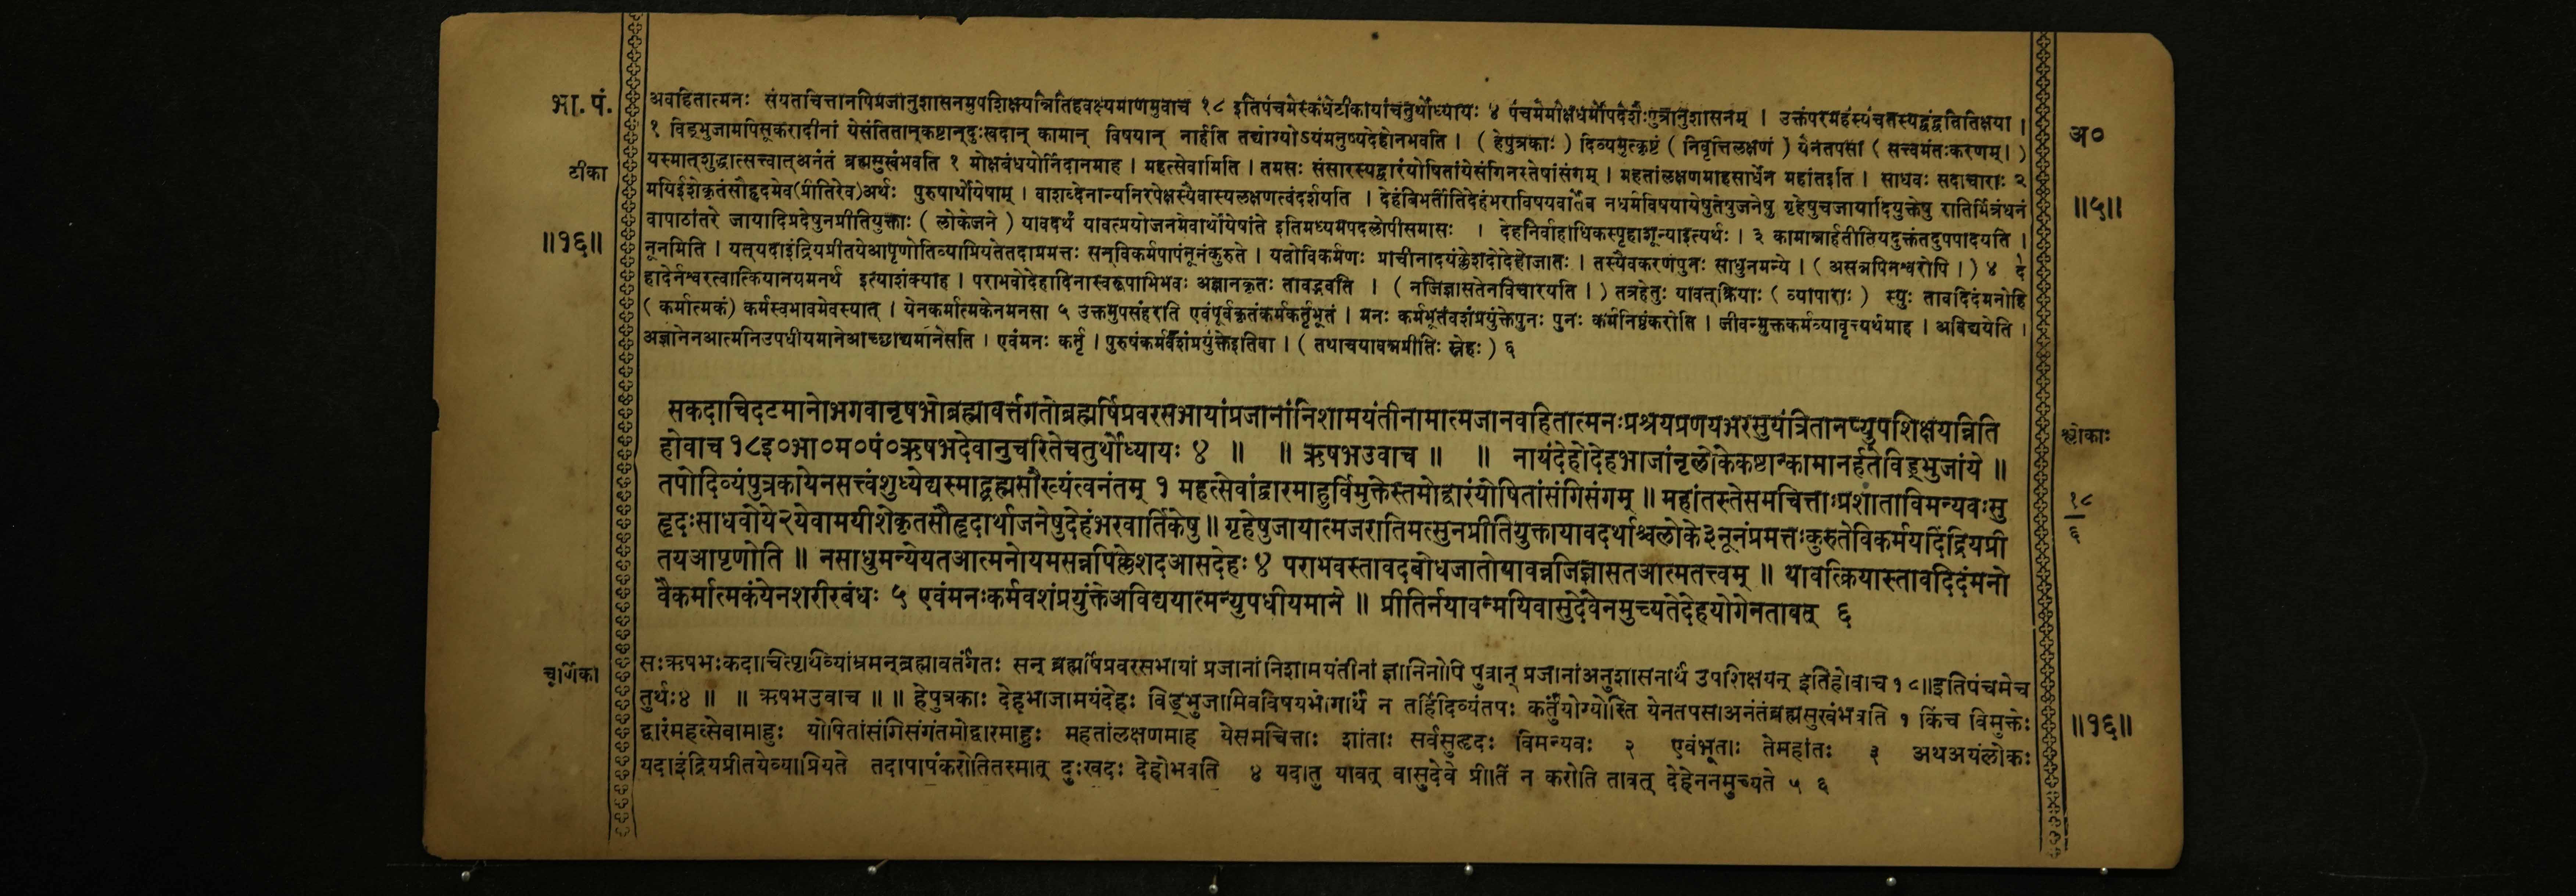 भा. पं.
अवहितात्मनः संयतचित्तानपिप्रजानुशासनमुपशिक्षयन्नितिहवक्ष्यमाणमुवाच १८ इतिपंचमेस्कंधेटीकायांचतुर्थोध्यायः ४ पंचमेमोक्षधर्मोपदेशैःपुत्रानुशासनम् । उक्तंपरमहंस्यंचतस्यद्वंद्वतितिक्षया ।
अ०
१ विड्भुजामपिसूकरादीनां येसंतितान्कष्टान्दुःखदान् कामान् विषयान् नार्हति तद्योग्योऽयंमनुष्यदेहोनभवति । ( हेपुत्रकाः ) दिव्यमुत्कृष्टं ( निवृत्तिलक्षणं ) येनतपसा ( सत्त्वमंतःकरणम्। )
टीका
यस्मात्शुद्धात्सत्त्वात्अनंतं ब्रह्मसुखंभवति १ मोक्षबंधयोर्निदानमाह । महत्सेवामिति । तमसः संसारस्यद्वारंयोषितांयेसंगिनस्तेषांसंगम् । महतांलक्षणमाहसार्धेन महांतइति । साधवः सदाचाराः २
मयिईशेकृतंसौहृदमेव(प्रीतिरेव)अर्थः पुरुषार्थोयेषाम् । वाशब्देनान्यनिरपेक्षस्यैवास्यलक्षणत्वंदर्शयति । देहंबिभर्तीतिदेहंभराविषयवार्तैव नधर्मविषयायेषुतेषुजनेषु गृहेषुचजायादियुक्तेषु रातिर्मित्रंधनं
॥५॥
वापाठांतरे जायादिप्रदेषुनप्रीतियुक्ताः ( लोकेजने ) यावदर्थं यावत्प्रयोजनमेवार्थोयेषांते इतिमध्यमपदलोपीसमासः । देहनिर्वाहाधिकस्पृहाशून्याइत्यर्थः । ३ कामान्नार्हतीतियदुक्तंतदुपपादयति ।
॥१६॥
नूनमिति । यत्यदाइंद्रियप्रीतयेआपृणोतिव्याप्रियतेतदाप्रमत्तः सन्विकर्मपापंनूनंकुरुते । यतोविकर्मणः प्राचीनादयंक्लेशदोदेहोजातः । तस्यैवकरणंपुनः साधुनमन्ये । ( असन्नपिनश्वरोपि । ) ४ दे
हादेर्नश्वरत्वात्कियानयमनर्थ इत्याशंक्याह । पराभवोदेहादिनास्वरूपाभिभवः अज्ञानकृतः तावद्भवति । ( नजिज्ञासतेनविचारयति । ) तत्रहेतुः यावत्क्रियाः ( व्यापाराः ) स्युः तावदिदंमनोहि
( कर्मात्मकं) कर्मस्वभावमेवस्यात् । येनकर्मात्मकेनमनसा ५ उक्तमुपसंहरति एवंपूर्वकृतंकर्मकर्तृभूतं । मनः कर्मभूतंवशंप्रयुंक्तेपुनः पुनः कर्मनिष्ठंकरोति । जीवन्मुक्तकर्मव्यावृत्त्यर्थमाह । अविद्ययेति ।
अज्ञानेनआत्मनिउपधीयमानेआच्छाद्यमानेसति । एवंमनः कर्तृ । पुरुषंकर्मवशंप्रयुंक्तेइतिवा । ( तथाचयावन्नप्रीतिः स्नेहः ) ६
सकदाचिदटमानोभगवानृषभोब्रह्मावर्त्तगतोब्रह्मर्षिप्रवरसभायांप्रजानांनिशामयंतीनामात्मजानवहितात्मनःप्रश्रयप्रणयभरसुयंत्रितानप्युपशिक्षयन्निति
श्लोकाः
होवाच १८इ०भा०म०पं०ऋषभदेवानुचरितेचतुर्थोध्यायः ४ ॥ ॥ ऋषभउवाच ॥ ॥ नायंदेहोदेहभाजांनृलोकेकष्टान्कामानर्हतेविड्भुजांये ॥
तपोदिव्यंपुत्रकायेनसत्त्वंशुध्येद्यस्माद्ब्रह्मसौख्यंत्वनंतम् १ महत्सेवांद्वारमाहुर्विमुक्तेस्तमोद्वारंयोषितांसंगिसंगम् ॥ महांतस्तेसमचित्ताःप्रशांताविमन्यवःसु
१८
६
हृदःसाधवोये२येवामयीशेकृतसौहृदार्थाजनेषुदेहंभरवार्तिकेषु ॥ गृहेषुजायात्मजरातिमत्सुनप्रीतियुक्तायावदर्थाश्चलोके३नूनंप्रमत्तःकुरुतेविकर्मयदिंद्रियप्री
तयआपृणोति ॥ नसाधुमन्येयतआत्मनोयमसन्नपिक्लेशदआसदेहः ४ पराभवस्तावदबोधजातोयावन्नजिज्ञासतआत्मतत्त्वम् ॥ यावत्क्रियास्तावदिदंमनो
वैकर्मात्मकंयेनशरीरबंधः ५ एवंमनःकर्मवशंप्रयुंक्तेअविद्ययात्मन्युपधीयमाने ॥ प्रीतिर्नयावन्मयिवासुदेवेनमुच्यतेदेहयोगेनतावत् ६
चूर्णिका
सःऋषभःकदाचित्पृथिव्यांभ्रमन्ब्रह्मावर्तंगतः सन् ब्रह्मर्षिप्रवरसभायां प्रजानांनिशामयंतीनां ज्ञानिनोपि पुत्रान् प्रजानांअनुशासनार्थं उपशिक्षयन् इतिहोवाच१८॥इतिपंचमेच
तुर्थः४ ॥ ॥ ऋषभउवाच ॥ ॥ हेपुत्रकाः देहभाजामयंदेहः विड्भुजामिवविषयभोगार्थं न तर्हिदिव्यंतपः कर्तुंयोग्योस्ति येनतपसाअनंतंब्रह्मसुखंभवति १ किंच विमुक्तेः
॥१६॥
द्वारंमहत्सेवामाहुः योषितांसंगिसंगंतमोद्वारमाहुः महतांलक्षणमाह येसमचित्ताः शांताः सर्वसुहृदः विमन्यवः २ एवंभूताः तेमहांतः ३ अथअयंलोकः
यदाइंद्रियप्रीतयेव्याप्रियते तदापापंकरोतितस्मात् दुःखदः देहोभवति ४ यदातु यावत् वासुदेवे प्रीतिं न करोति तावत् देहेननमुच्यते ५ ६